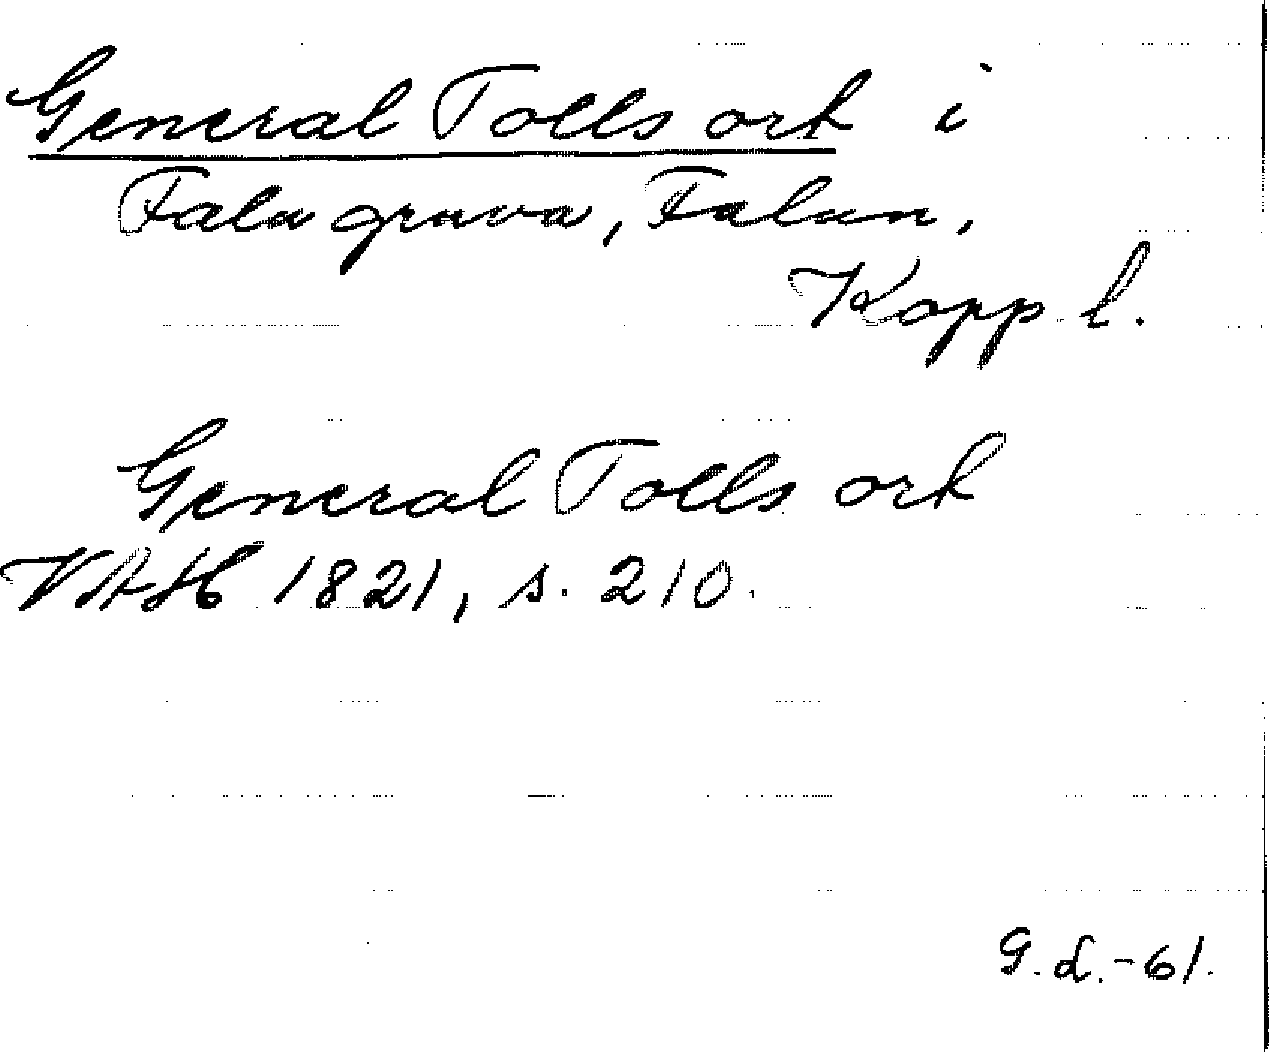 General Tolls ort i
Falu gruva, Falun,
Kopp. l.
General Tolls ort
VAH 1821, s. 210.
G. L. -61.